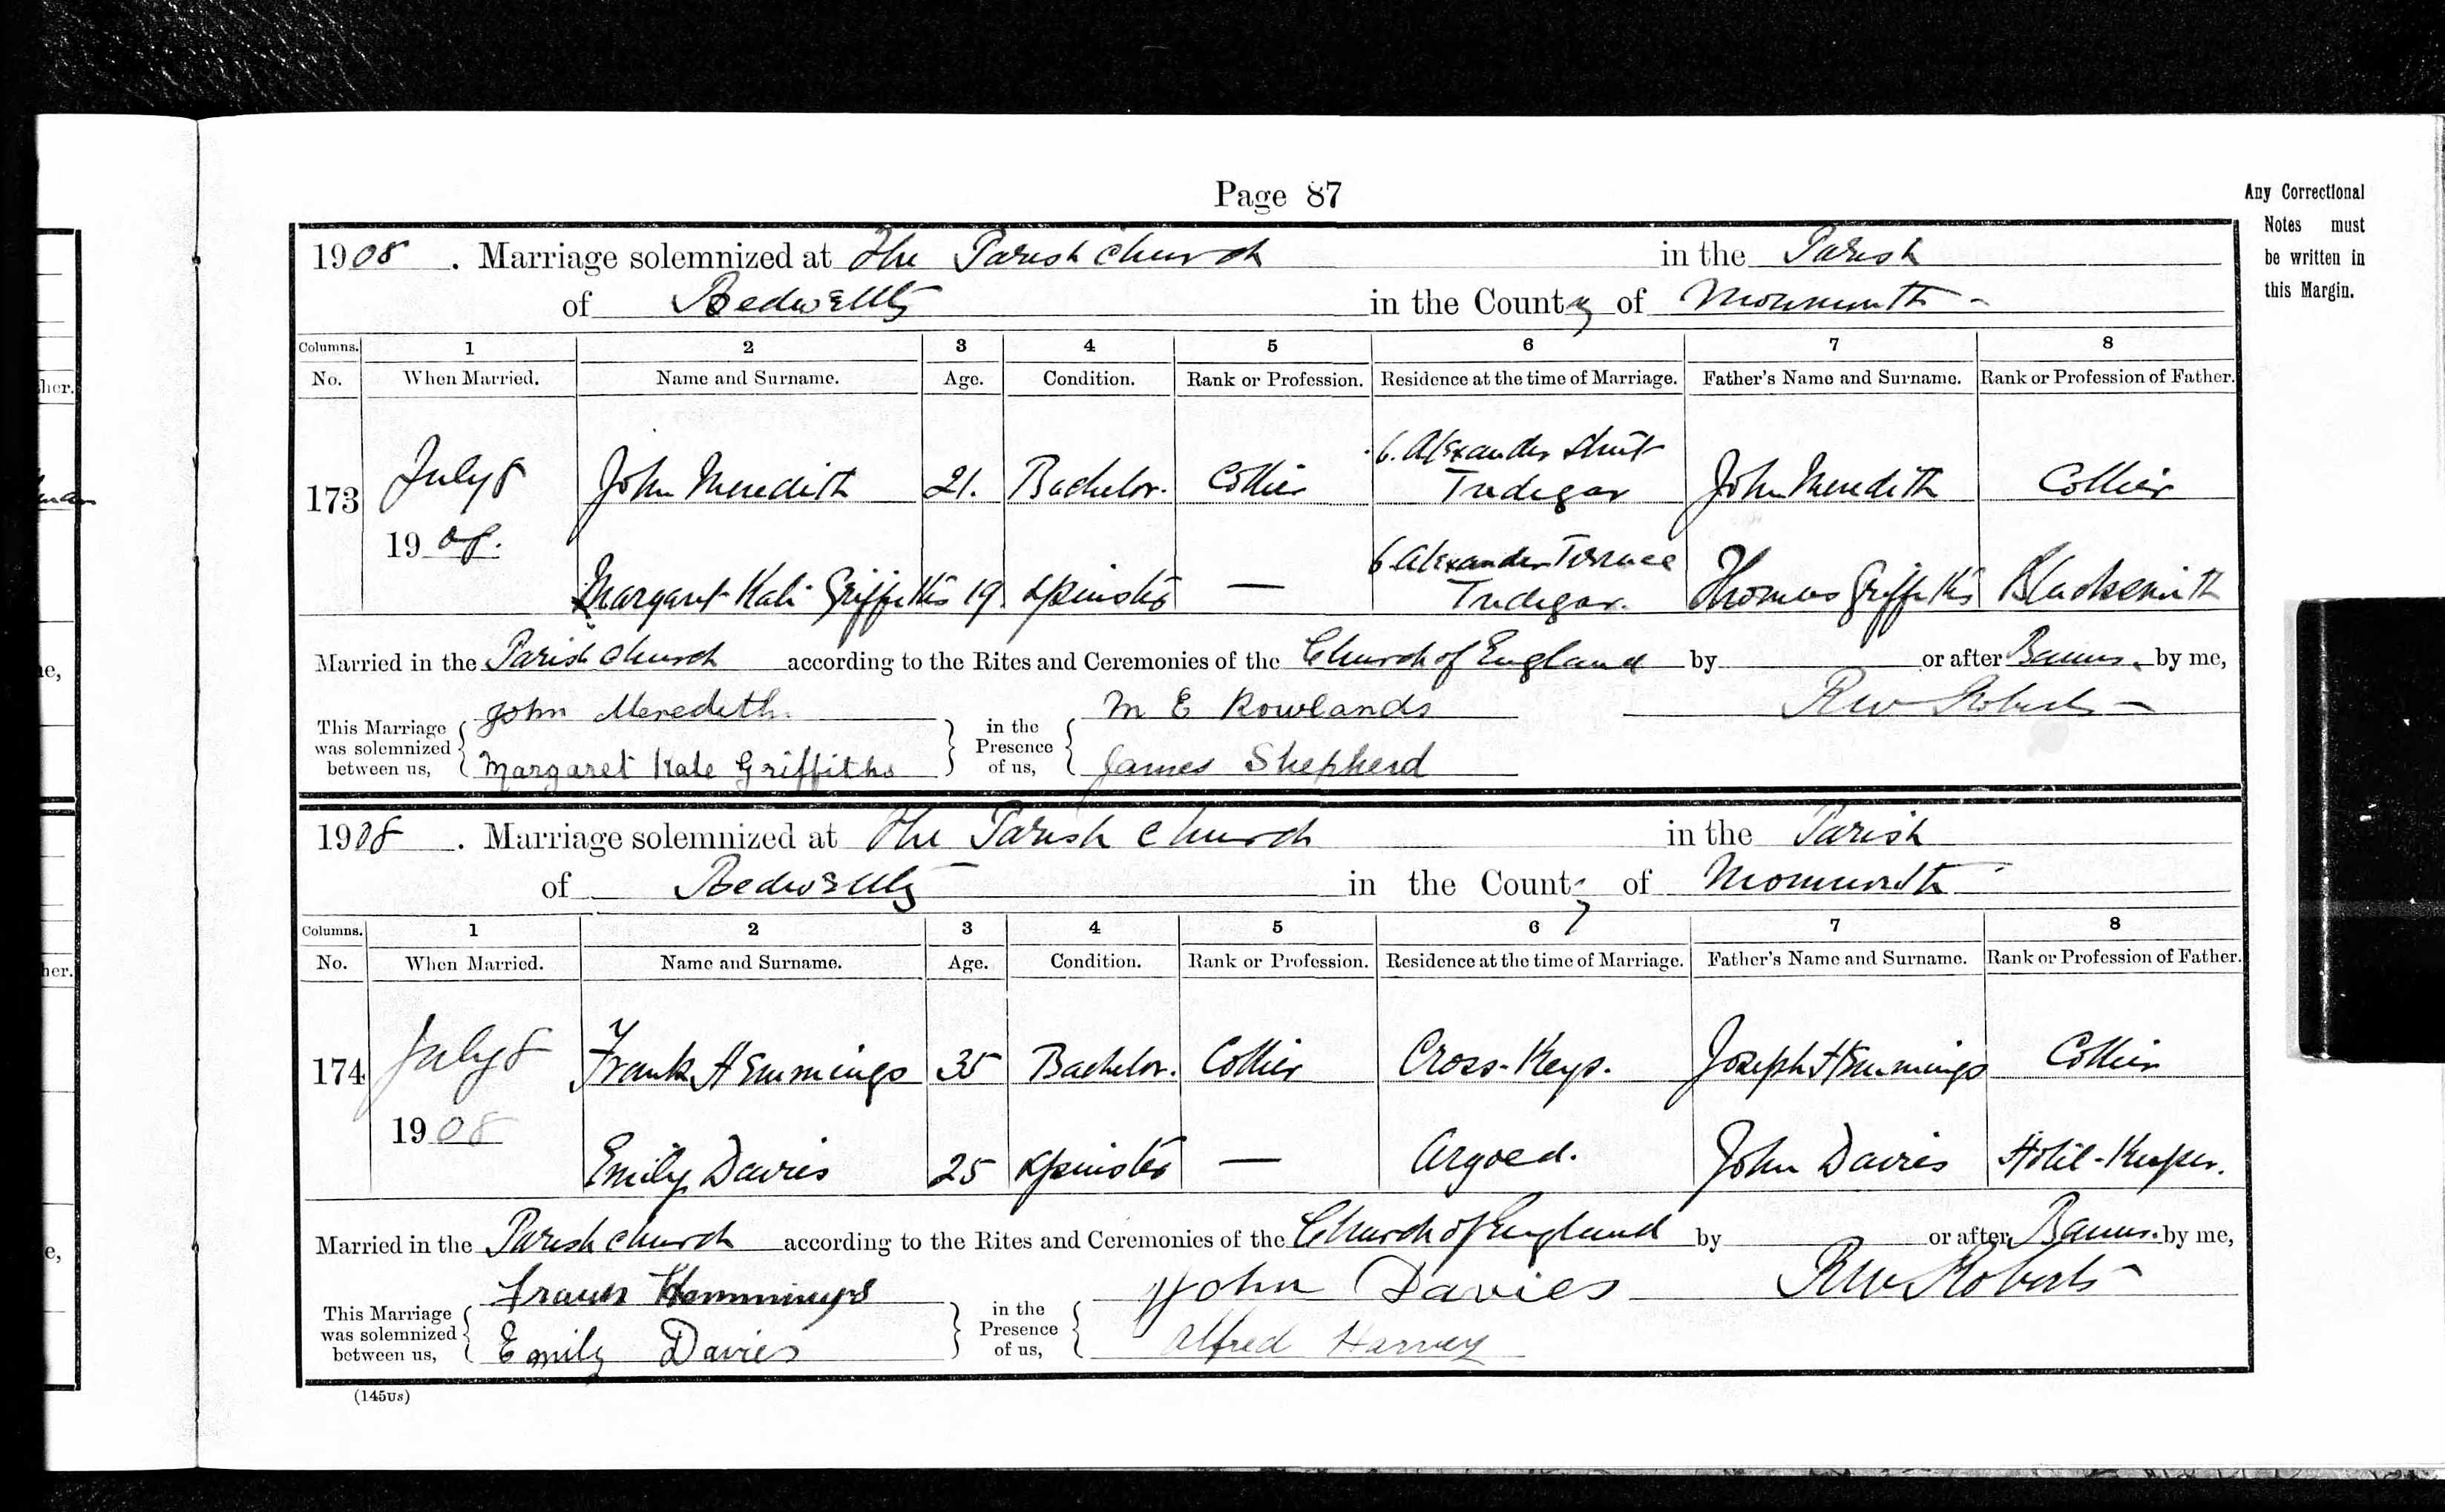 Page 87
Any Correctional
Notes must
be written in
this Margin.
1908. Marriage solemnized at The Parish Church in the Parish
of Bedwellty in the County of Monmouth
Columns. 1 2 3 4 5 6 7 8
No. When Married. Name and Surname. Age. Condition. Rank or Profession. Residence at the time of Marriage. Father's Name and Surname. Rank or Profession of Father.
her.
173 July 8 John Meredith 21. Bachelor. Collier 6. Alexander Street Tredegar John Meredith Collier
1908. Margaret Kate Griffiths 19 Spinster — 6 Alexander Terrace Tredegar. Thomas Griffiths Blacksmith
Married in the Parish Church according to the Rites and Ceremonies of the Church of England by or after Banns. by me,
e,
This Marriage was solemnized between us, John Meredith. Margaret Kate Griffiths in the Presence of us, M E Rowlands James Shepherd RW Roberts
1908. Marriage solemnized at The Parish Church in the Parish
of Bedwellty in the County of Monmouth
Columns. 1 2 3 4 5 6 7 8
No. When Married. Name and Surname. Age. Condition. Rank or Profession. Residence at the time of Marriage. Father's Name and Surname. Rank or Profession of Father.
her.
174 July 8 Frank Hemmings 35 Bachelor. Collier Cross-Keys. Joseph Hemmings Collier
1908 Emily Davies 25 Spinster — Argoed. John Davies Hotel-Keeper.
Married in the Parish Church according to the Rites and Ceremonies of the Church of England by or after Banns. by me,
e,
This Marriage was solemnized between us, Frank Hemmings Emily Davies in the Presence of us, John Davies Alfred Harvey RW Roberts
(145us)